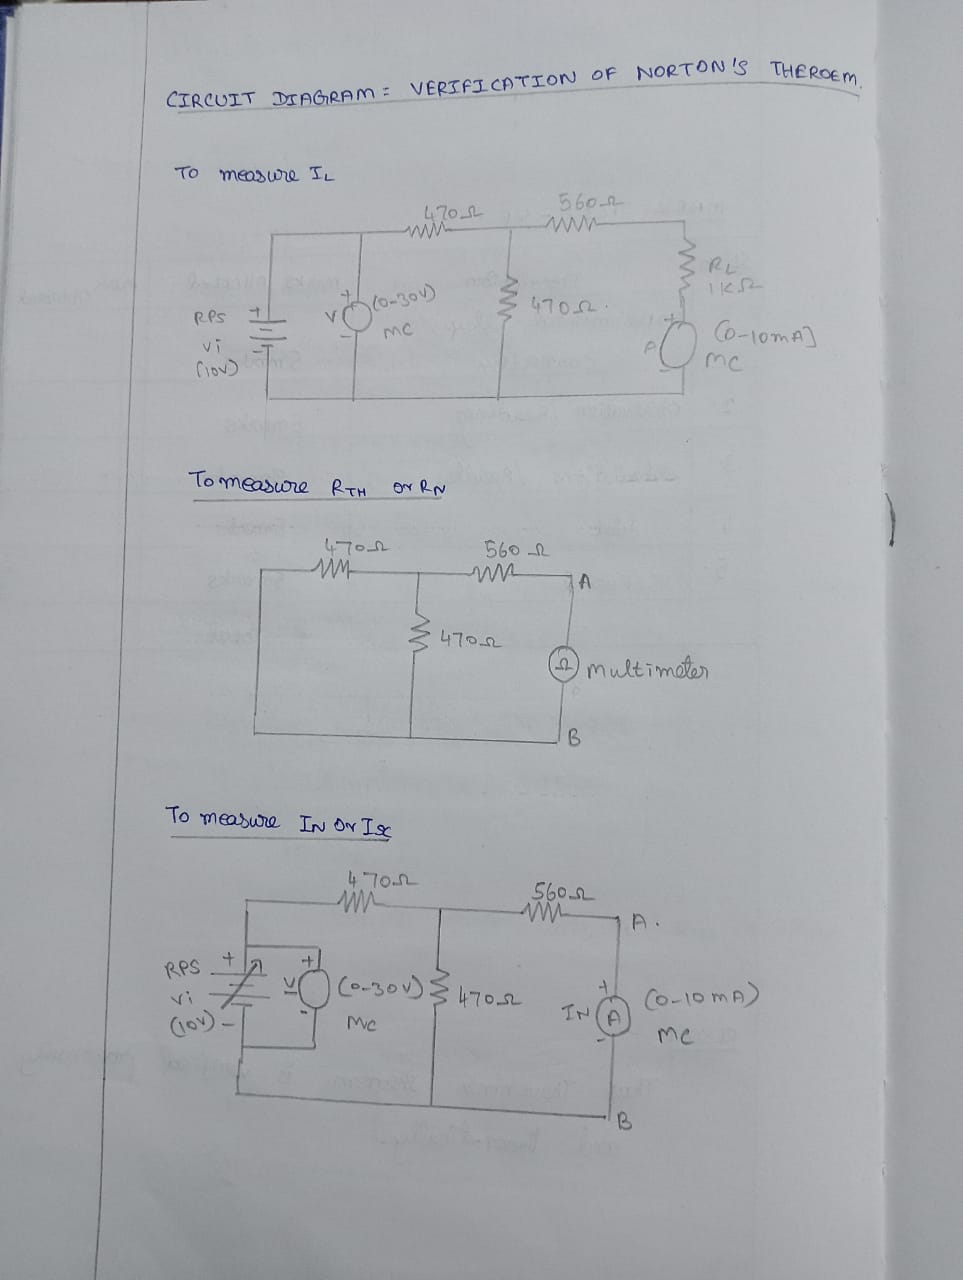 CIRCUIT DIAGRAM: VERIFICATION OF NORTON'S THEROEM.
To measure IL
470Ω
560Ω
RL
1KΩ
RPS
Vi
(10V)
+
-
V
+
-
(0-30V)
MC
470Ω.
A
+
-
(0-10mA)
MC
To measure RTH or RN
470Ω
560Ω
A
470Ω
Ω
multimeter
B
To measure IN or Isc
470Ω
560Ω
A.
RPS
Vi
(10V)
+
-
V
+
-
(0-30V)
MC
470Ω
IN
A
+
-
(0-10mA)
MC
B